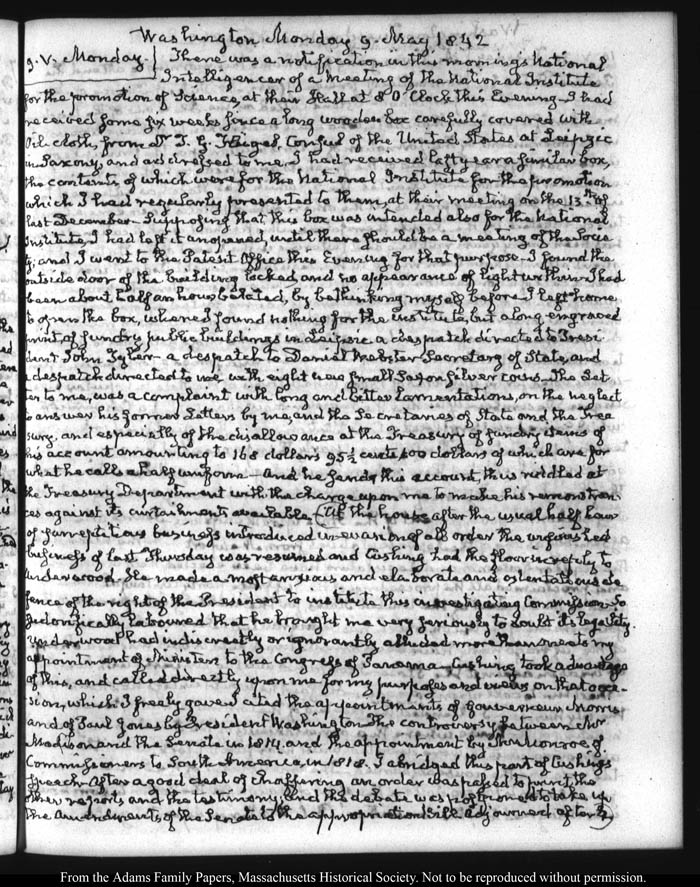 Washington Monday 9. May 1842
9. V. Monday. There was a notification in this morning's National
Intelligencer of a Meeting of the National Institute
for the promotion of Science, at their Hall at 8 O'Clock this Evening. I had
received some six weeks since a long wooden box carefully covered with
Oil cloth, from Dr J. G. Consul of the United States at Leipzic
in Saxony and addressed to me. I had received last year a similar box,
the contents of which were for the National Institute for the promotion
which I had regularly presented to them, at their meeting on the 13th of
last December. Supposing that this box was intended also for the National
Institute, I had left it unopened, until there should be a meeting of the Socie-
ty; and I went to the Patent Office this Evening for that purpose. I found the
outside door of the building locked, and no appearance of light within. I had
been about half an hour belated, by bethinking myself before I left home
to open the box, where I found nothing for the institute, but a long engraved
print of sundry public buildings in Leipsic a despatch directed to Presi-
dent John Tyler— a despatch to Daniel Webster Secretary of State, and
a despatch directed to me, with eight new small Saxon silver coins. The Let-
ter to me, was a complaint with long and bitter Lamentations, on the neglect
to answer his former Letters by me, and the Secretaries of State and the Trea-
sury, and especially of the disallowance at the Treasury of sundry items of
his account amounting to 168 dollars 95½ cents 100 dollars of which are for
what he calls a half uniform— And he sends this account, thus riddled at
the Treasury Department with the charge upon me to make his remonstran-
ces against its curtailments available. At the house after the usual half hour
of surreptitious business introduced in evasion of all order the unfinished
business of last Thursday was resumed and Cushing had the floor in reply to
Underwood. He made a most anxious and elaborate and ostentatious de-
fence of the right of the President to institute this investigating Commission. So
laboured that he brought me very seriously to doubt its legality.
Underwood had indiscreetly or ignorantly alluded more than once to my
appointment of Ministers to the Congress of Panama. Cushing took advantage
of this, and called directly upon me for my purposes and views on that occa-
sion, which I freely gave. I cited the appointments of Gouverneur Morris
and of Paul Jones by President Washington. The controversy between Mr
Madison and the Senate in 1814. and the appointment by Mr Monroe of
Commissioners to South America, in 1818. I abridged this part of Cushing's
speech. After a good deal of chaffering an order was passed to print the
other reports and the testimony, and the debate was postponed to take up
the Amendments of the Senate to the appropriation bill. Adjourned after 4
From the Adams Family Papers, Massachusetts Historical Society. Not to be reproduced without permission.